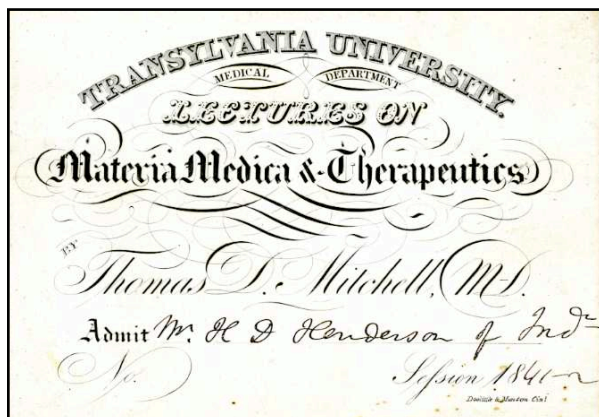 TRANSYLVANIA UNIVERSITY.
MEDICAL DEPARTMENT
LECTURES ON
Materia Medica & Therapeutics
BY
Thomas D. Mitchell, M.D.
Admit Mr. H D Henderson of Inda
No. Session 1841-2
Doolittle & Munson Cin!